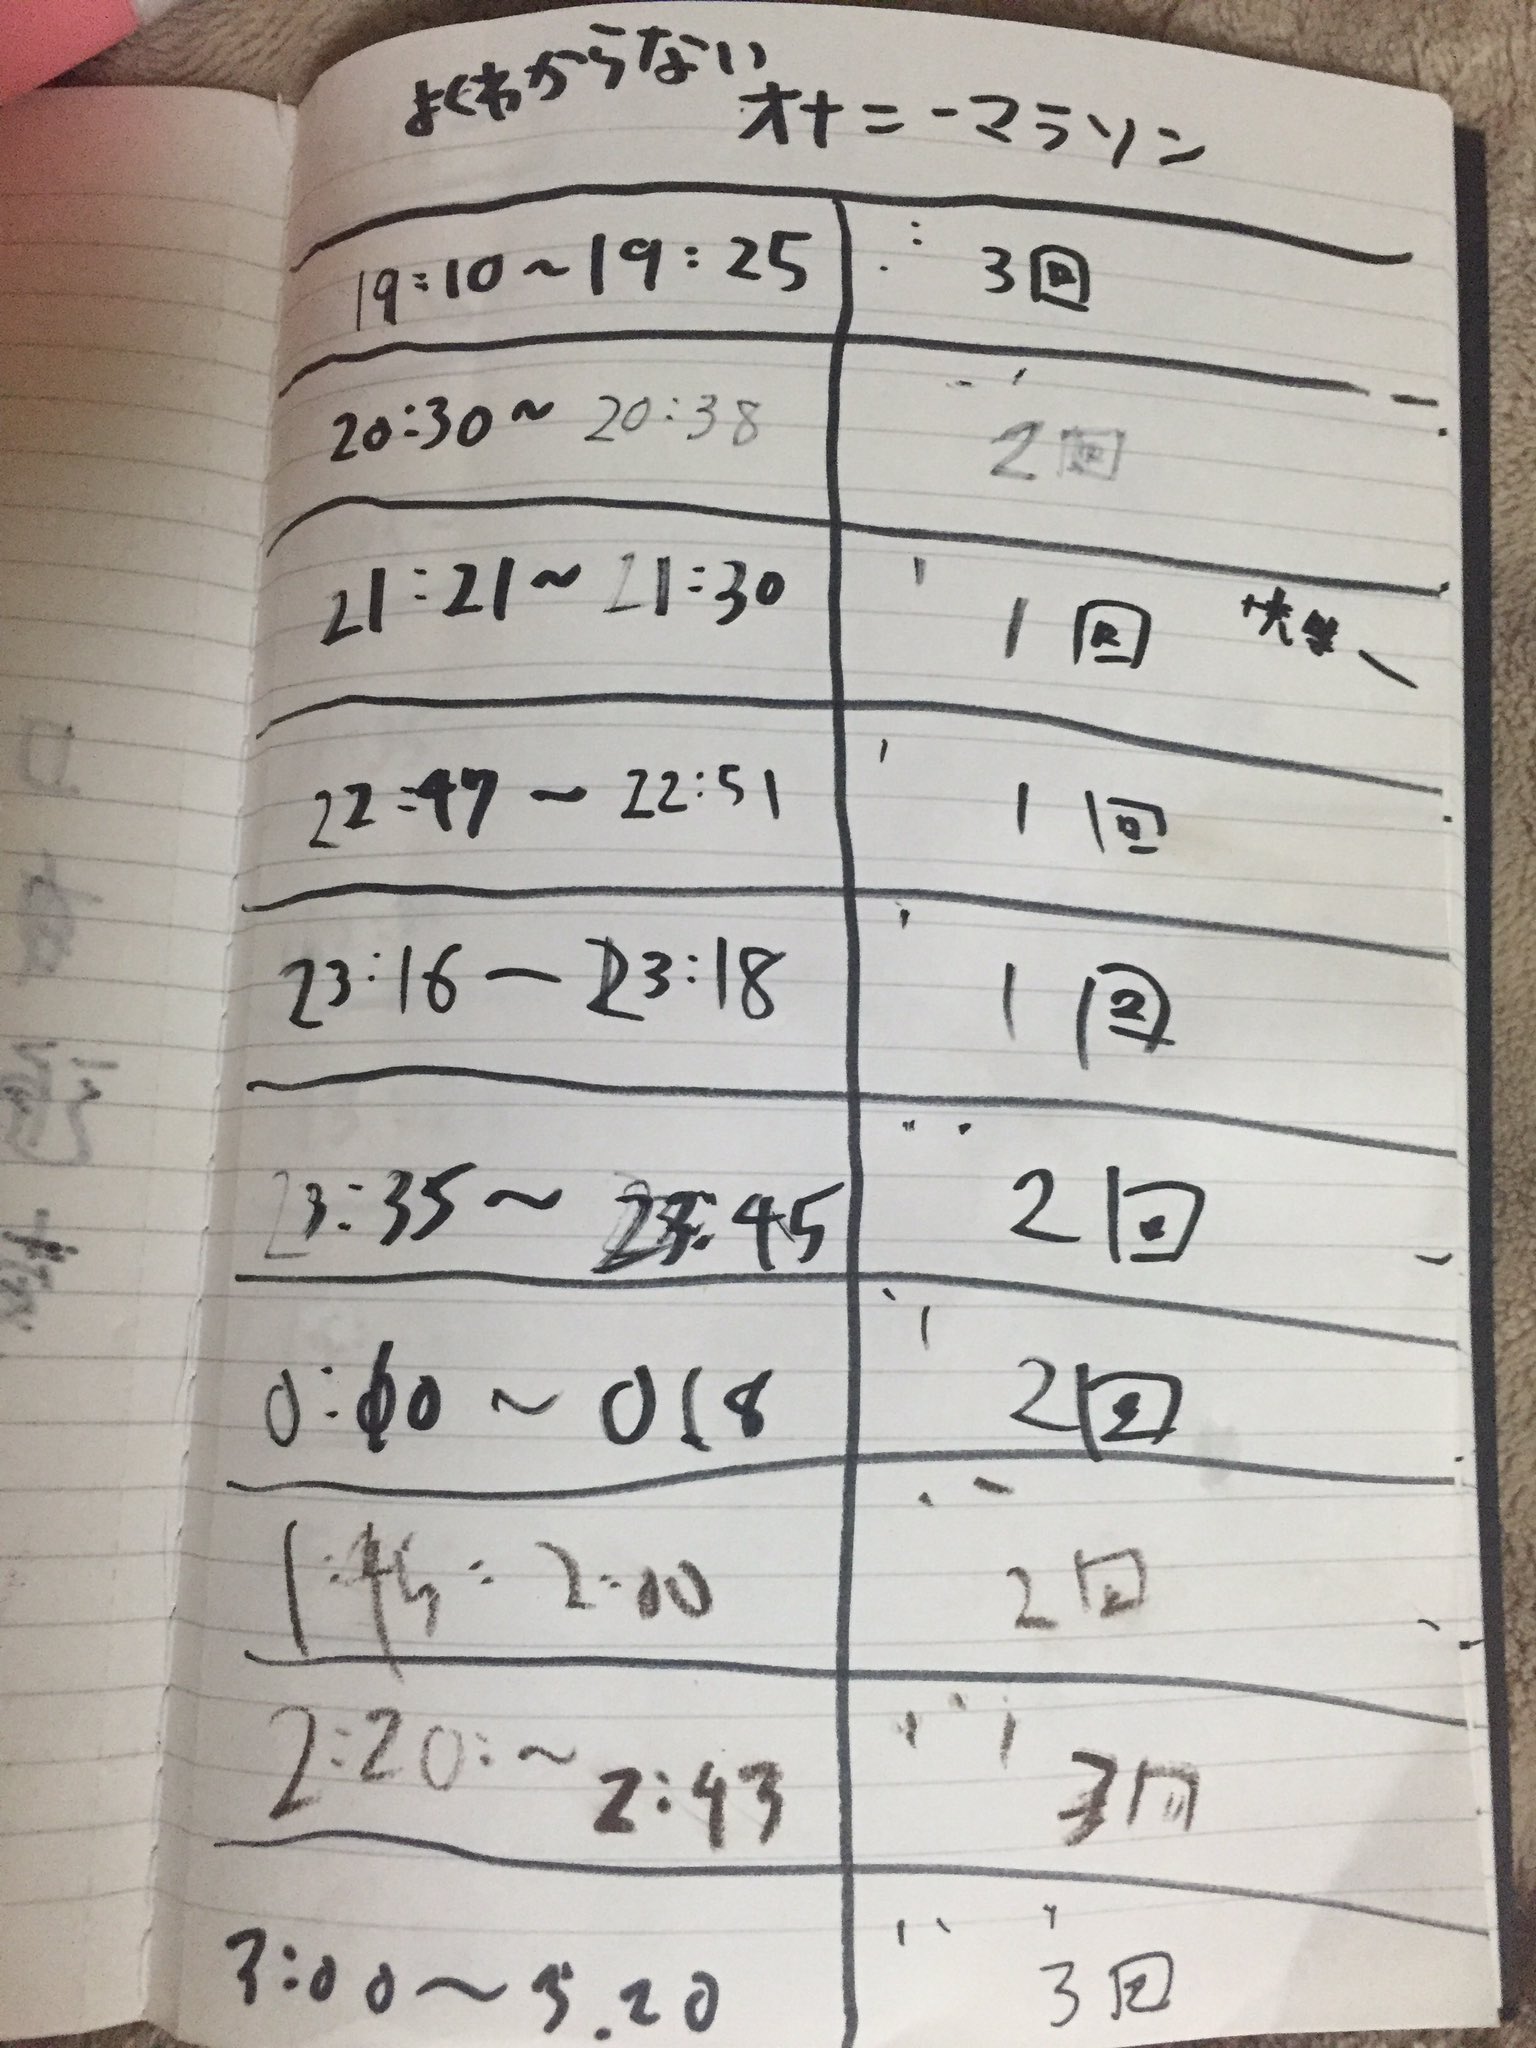 よくわからない
オナニーマラソン
19:10~19:25 3回
20:30~20:38 2回
21:21~21:30 1回
22:47~22:51 1回
23:16~23:18 1回
23:35~23:45 2回
0:00~0:18 2回
1:45:2:00 2回
2:20:~2:43 3回
3:00~3.20 3回